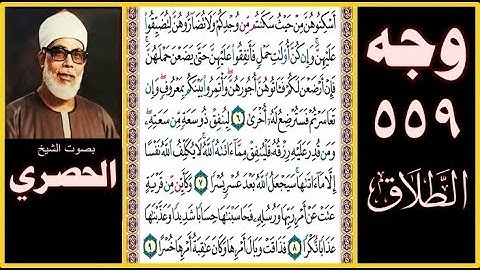 وجه
٥٥٩
الطَّلَاق
أَسْكِنُوهُنَّ مِنْ حَيْثُ سَكَنتُم مِّن وُجْدِكُمْ وَلَا تُضَآرُّوهُنَّ لِتُضَيِّقُوا۟
عَلَيْهِنَّ ۚ وَإِن كُنَّ أُو۟لَـٰتِ حَمْلٍ فَأَنفِقُوا۟ عَلَيْهِنَّ حَتَّىٰ يَضَعْنَ حَمْلَهُنَّ ۚ
فَإِنْ أَرْضَعْنَ لَكُمْ فَـَٔاتُوهُنَّ أُجُورَهُنَّ ۖ وَأْتَمِرُوا۟ بَيْنَكُم بِمَعْرُوفٍ ۖ وَإِن
تَعَاسَرْتُمْ فَسَتُرْضِعُ لَهُۥٓ أُخْرَىٰ ٦ لِيُنفِقْ ذُو سَعَةٍ مِّن سَعَتِهِۦ ۖ
وَمَن قُدِرَ عَلَيْهِ رِزْقُهُۥ فَلْيُنفِقْ مِمَّآ ءَاتَىٰهُ ٱللَّهُ ۚ لَا يُكَلِّفُ ٱللَّهُ نَفْسًا
إِلَّا مَآ ءَاتَىٰهَا ۚ سَيَجْعَلُ ٱللَّهُ بَعْدَ عُسْرٍ يُسْرًا ٧ وَكَأَيِّن مِّن قَرْيَةٍ
عَتَتْ عَنْ أَمْرِ رَبِّهَا وَرُسُلِهِۦ فَحَاسَبْنَـٰهَا حِسَابًا شَدِيدًا وَعَذَّبْنَـٰهَا
عَذَابًا نُّكْرًا ٨ فَذَاقَتْ وَبَالَ أَمْرِهَا وَكَانَ عَـٰقِبَةُ أَمْرِهَا خُسْرًا ٩
بصوت الشيخ
الحصري